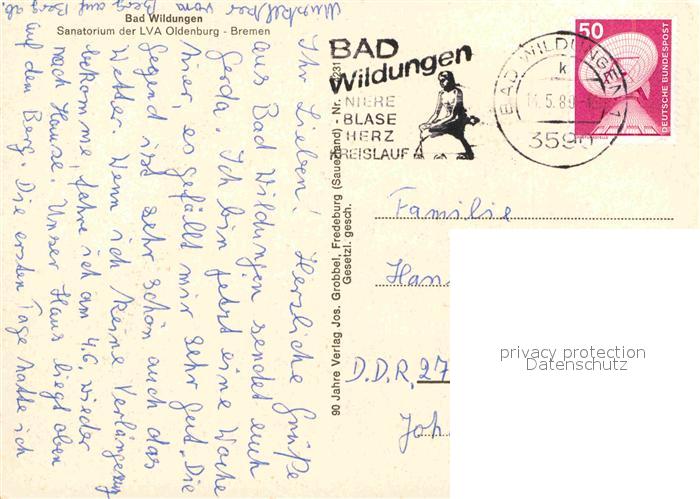 Bad Wildungen
Sanatorium der LVA Oldenburg - Bremen
Ihr Lieben! Herzliche Grüße
aus Bad Wildungen sendet euch
Gerda. Ich bin jetzt eine Woche
hier, es gefällt mir sehr gut. Die
Gegend ist sehr schön auch das
Wetter. Wenn ich keine Verlängerung
bekomme, fahre ich am 4.6. wieder
nach Hause. Unser Haus liegt oben
auf den Berg. Die ersten Tage hatte ich
Muskelkater vom Berg auf Berg ab.
90 Jahre Verlag Jos. Grobbel, Fredeburg (Sauerland) - Nr.
Gesetzl. gesch.
BAD
Wildungen
NIERE
BLASE
HERZ
KREISLAUF
BAD WILDUNGEN 1
k
3590
50
DEUTSCHE BUNDESPOST
Familie
Han
D.D.R. 27
Joh
privacy protection
Datenschutz